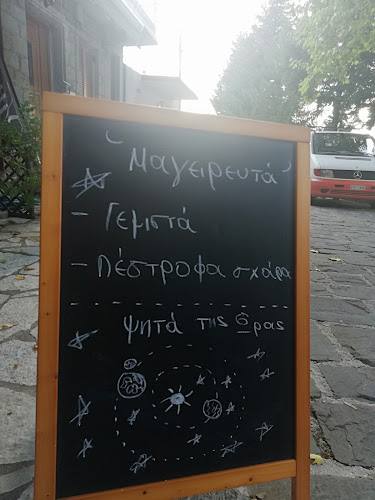 Μαγειρευτά
- Γεμιστά
- Πέστροφα σχάρα
Ψητά της ώρας